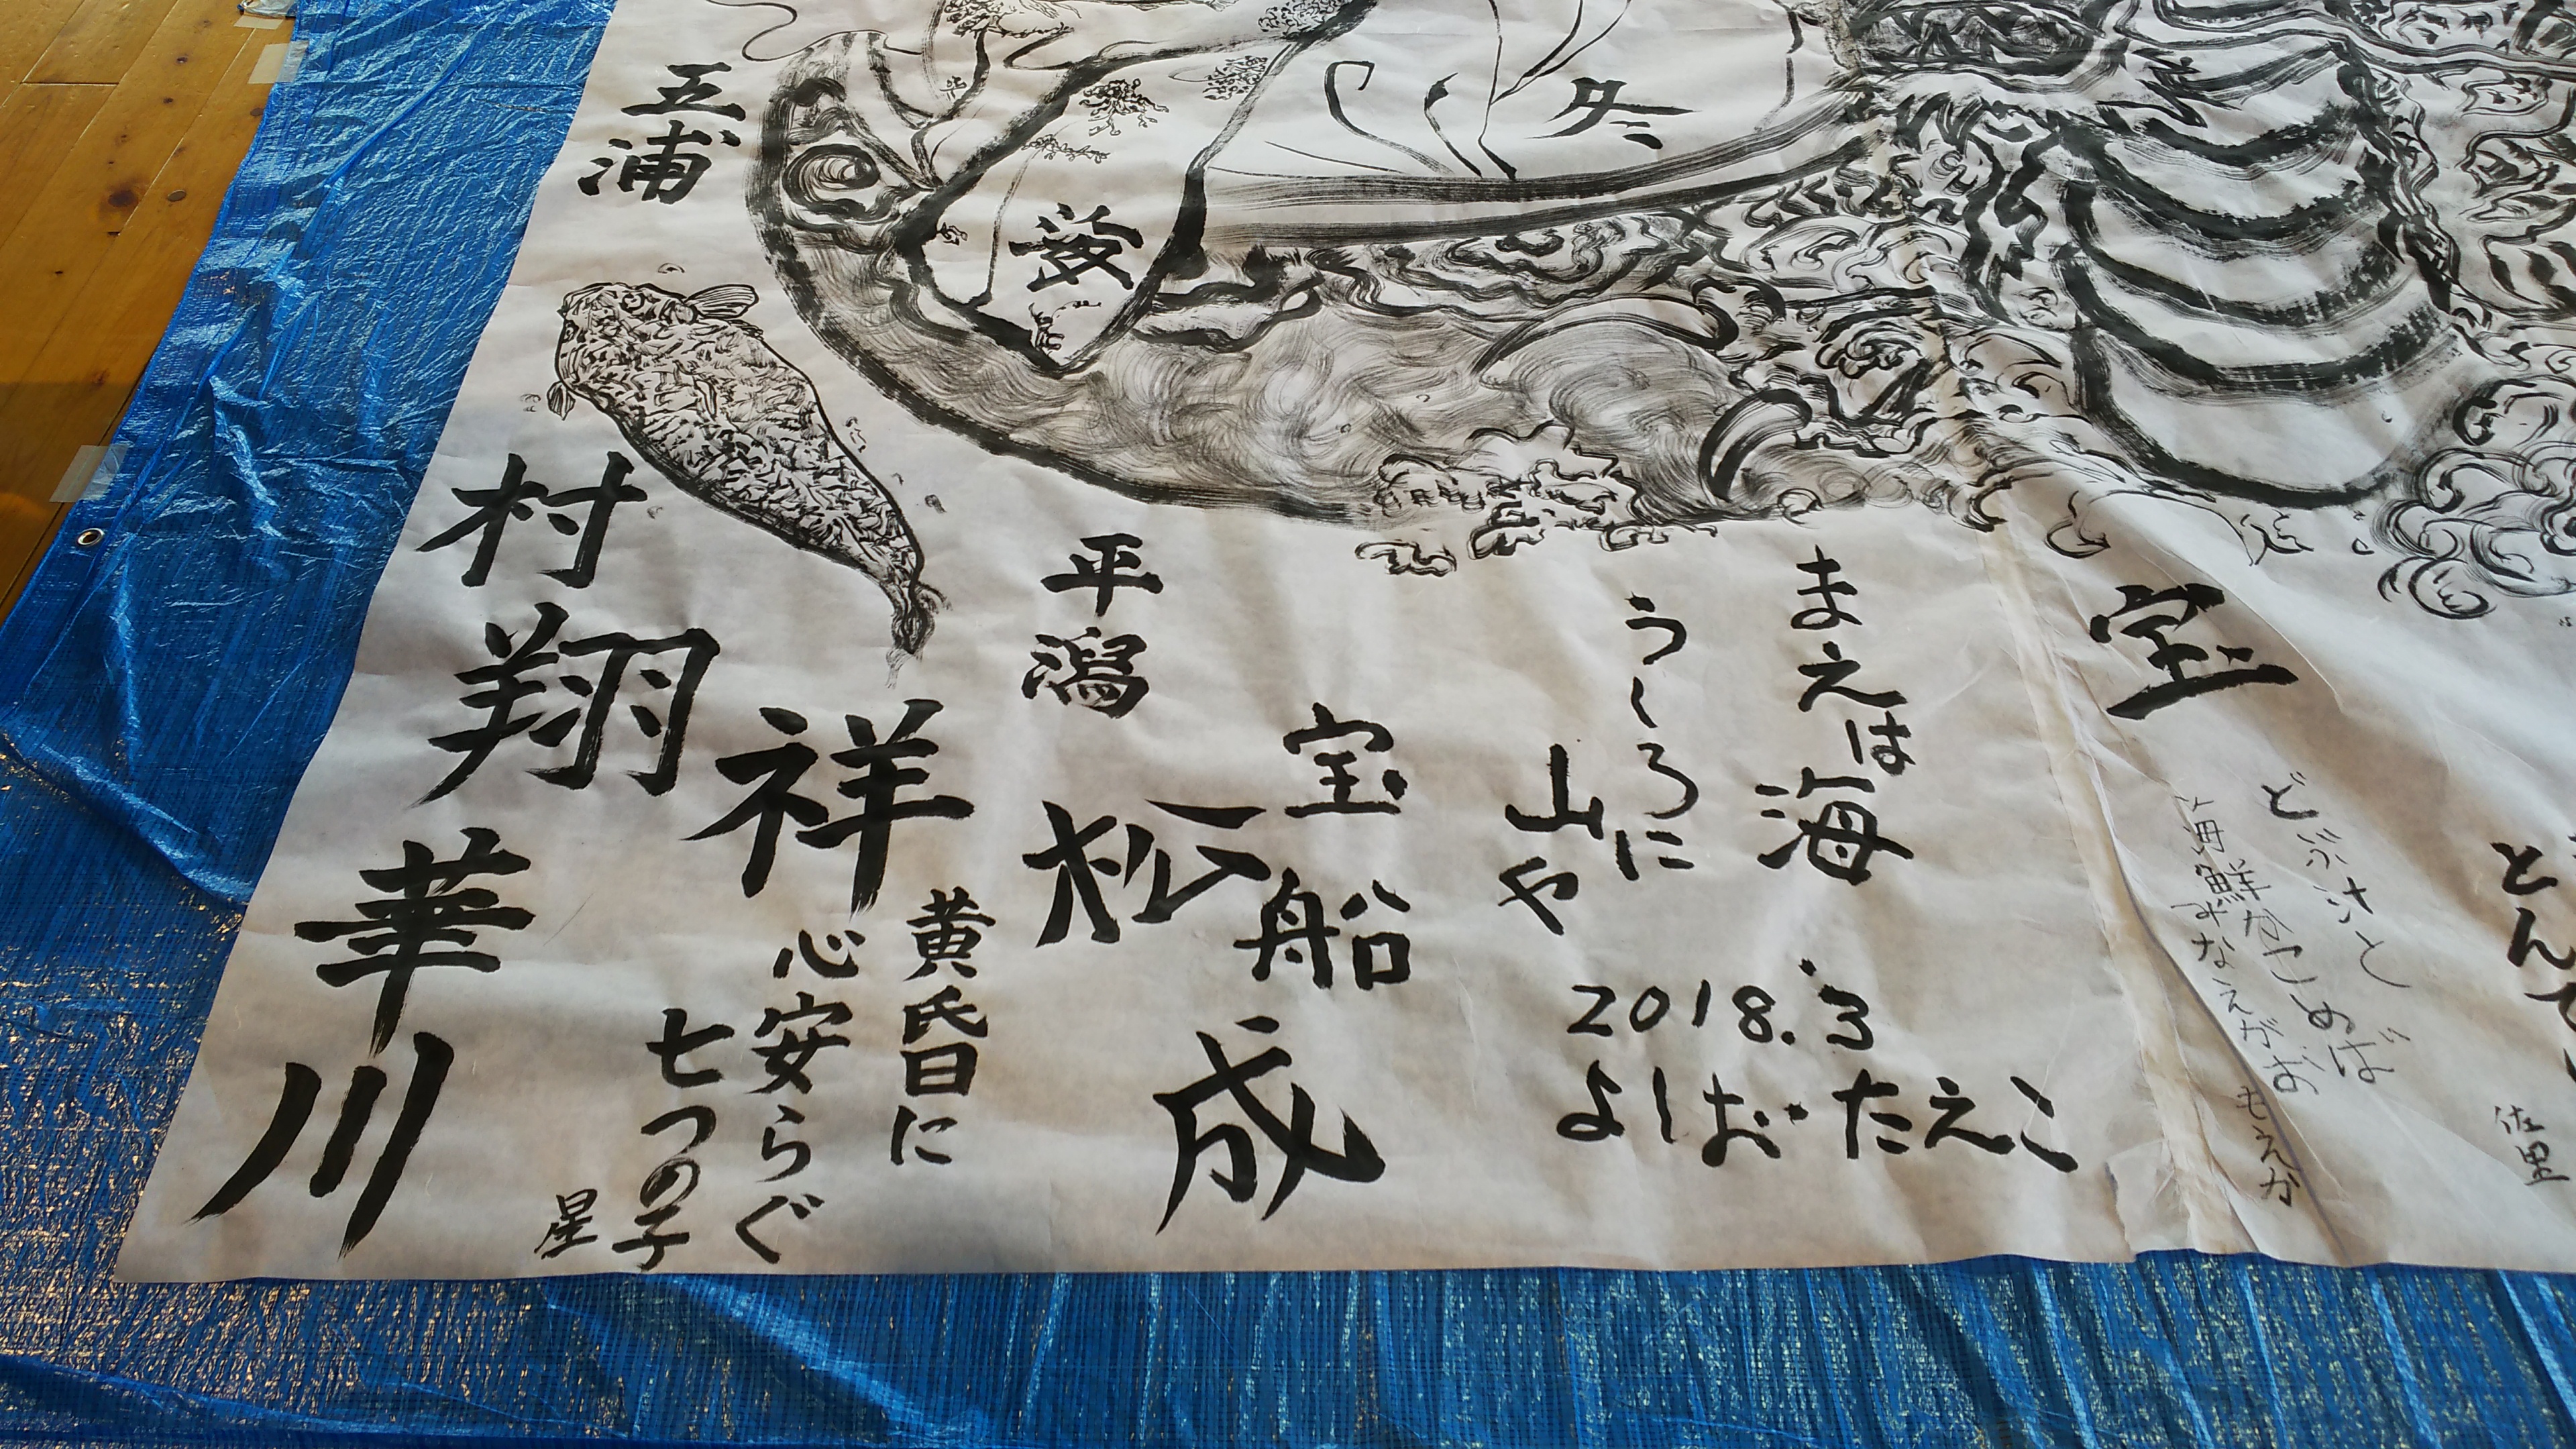 冬
五浦
宝
まえは海
うしろに
山や
2018.3
よしお・たえこ
平潟
宝船
松
成
村
翔
祥
華
川
黄昏に
心安らぐ
七つの子
星
どぶ汁と
海鮮かこめば
みなえがお
もえか
佐里